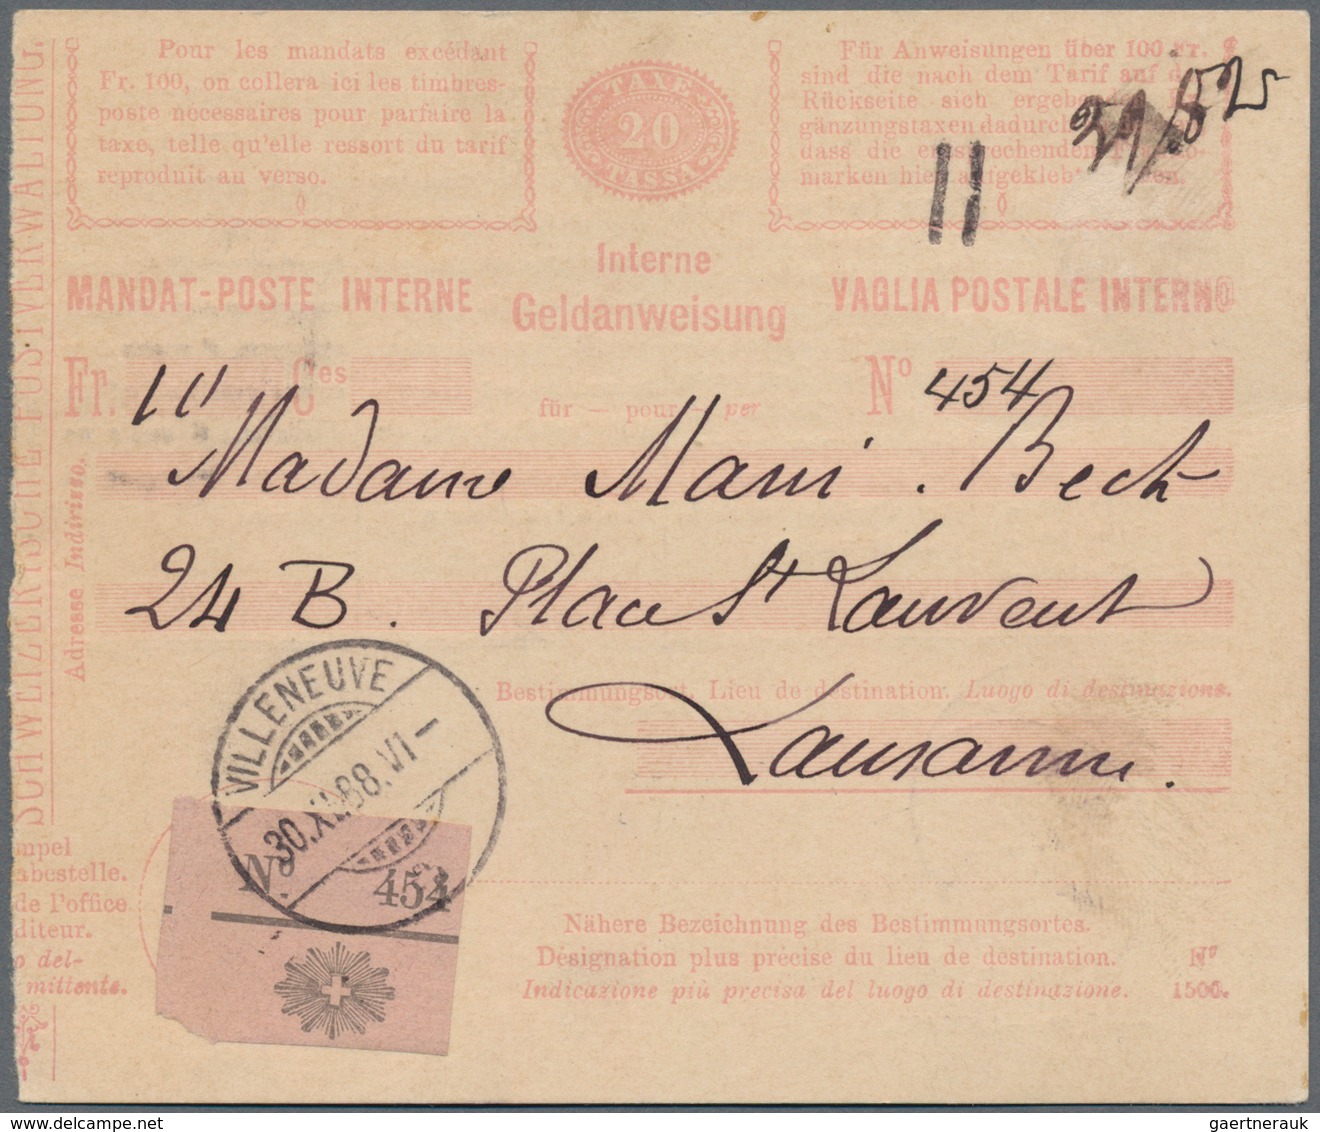 SCHWEIZERISCHE POSTVERWALTUNG.
Pour les mandats excédant
Fr. 100, on collera ici les timbres-
poste nécessaires pour parfaire la
taxe, telle qu'elle ressort du tarif
reproduit au verso.
TAXE
20
TASSA
Für Anweisungen über 100 Fr.
sind die nach dem Tarif auf
Rückseite sich
gänzungstaxen dadurch
dass die entsprechenden
marken hier aufgeklebt
29/82
11
MANDAT-POSTE INTERNE
Interne
Geldanweisung
VAGLIA POSTALE INTERNO
Fr. 11 Ces
für — pour — per
No 454
Adresse Indirizzo.
Madame Marii . Beck
24 B. Place St Laurent
Bestimmungsort. Lieu de destination. Luogo di destinazione.
Lausanne.
VILLENEUVE
30.XI.88.VI-
No 454
mpel
abestelle.
de l'office
diteur.
o del-
mittente.
Nähere Bezeichnung des Bestimmungsortes.
Désignation plus précise du lieu de destination.
Indicazione più precisa del luogo di destinazione.
No
1500.
gaertnerauk